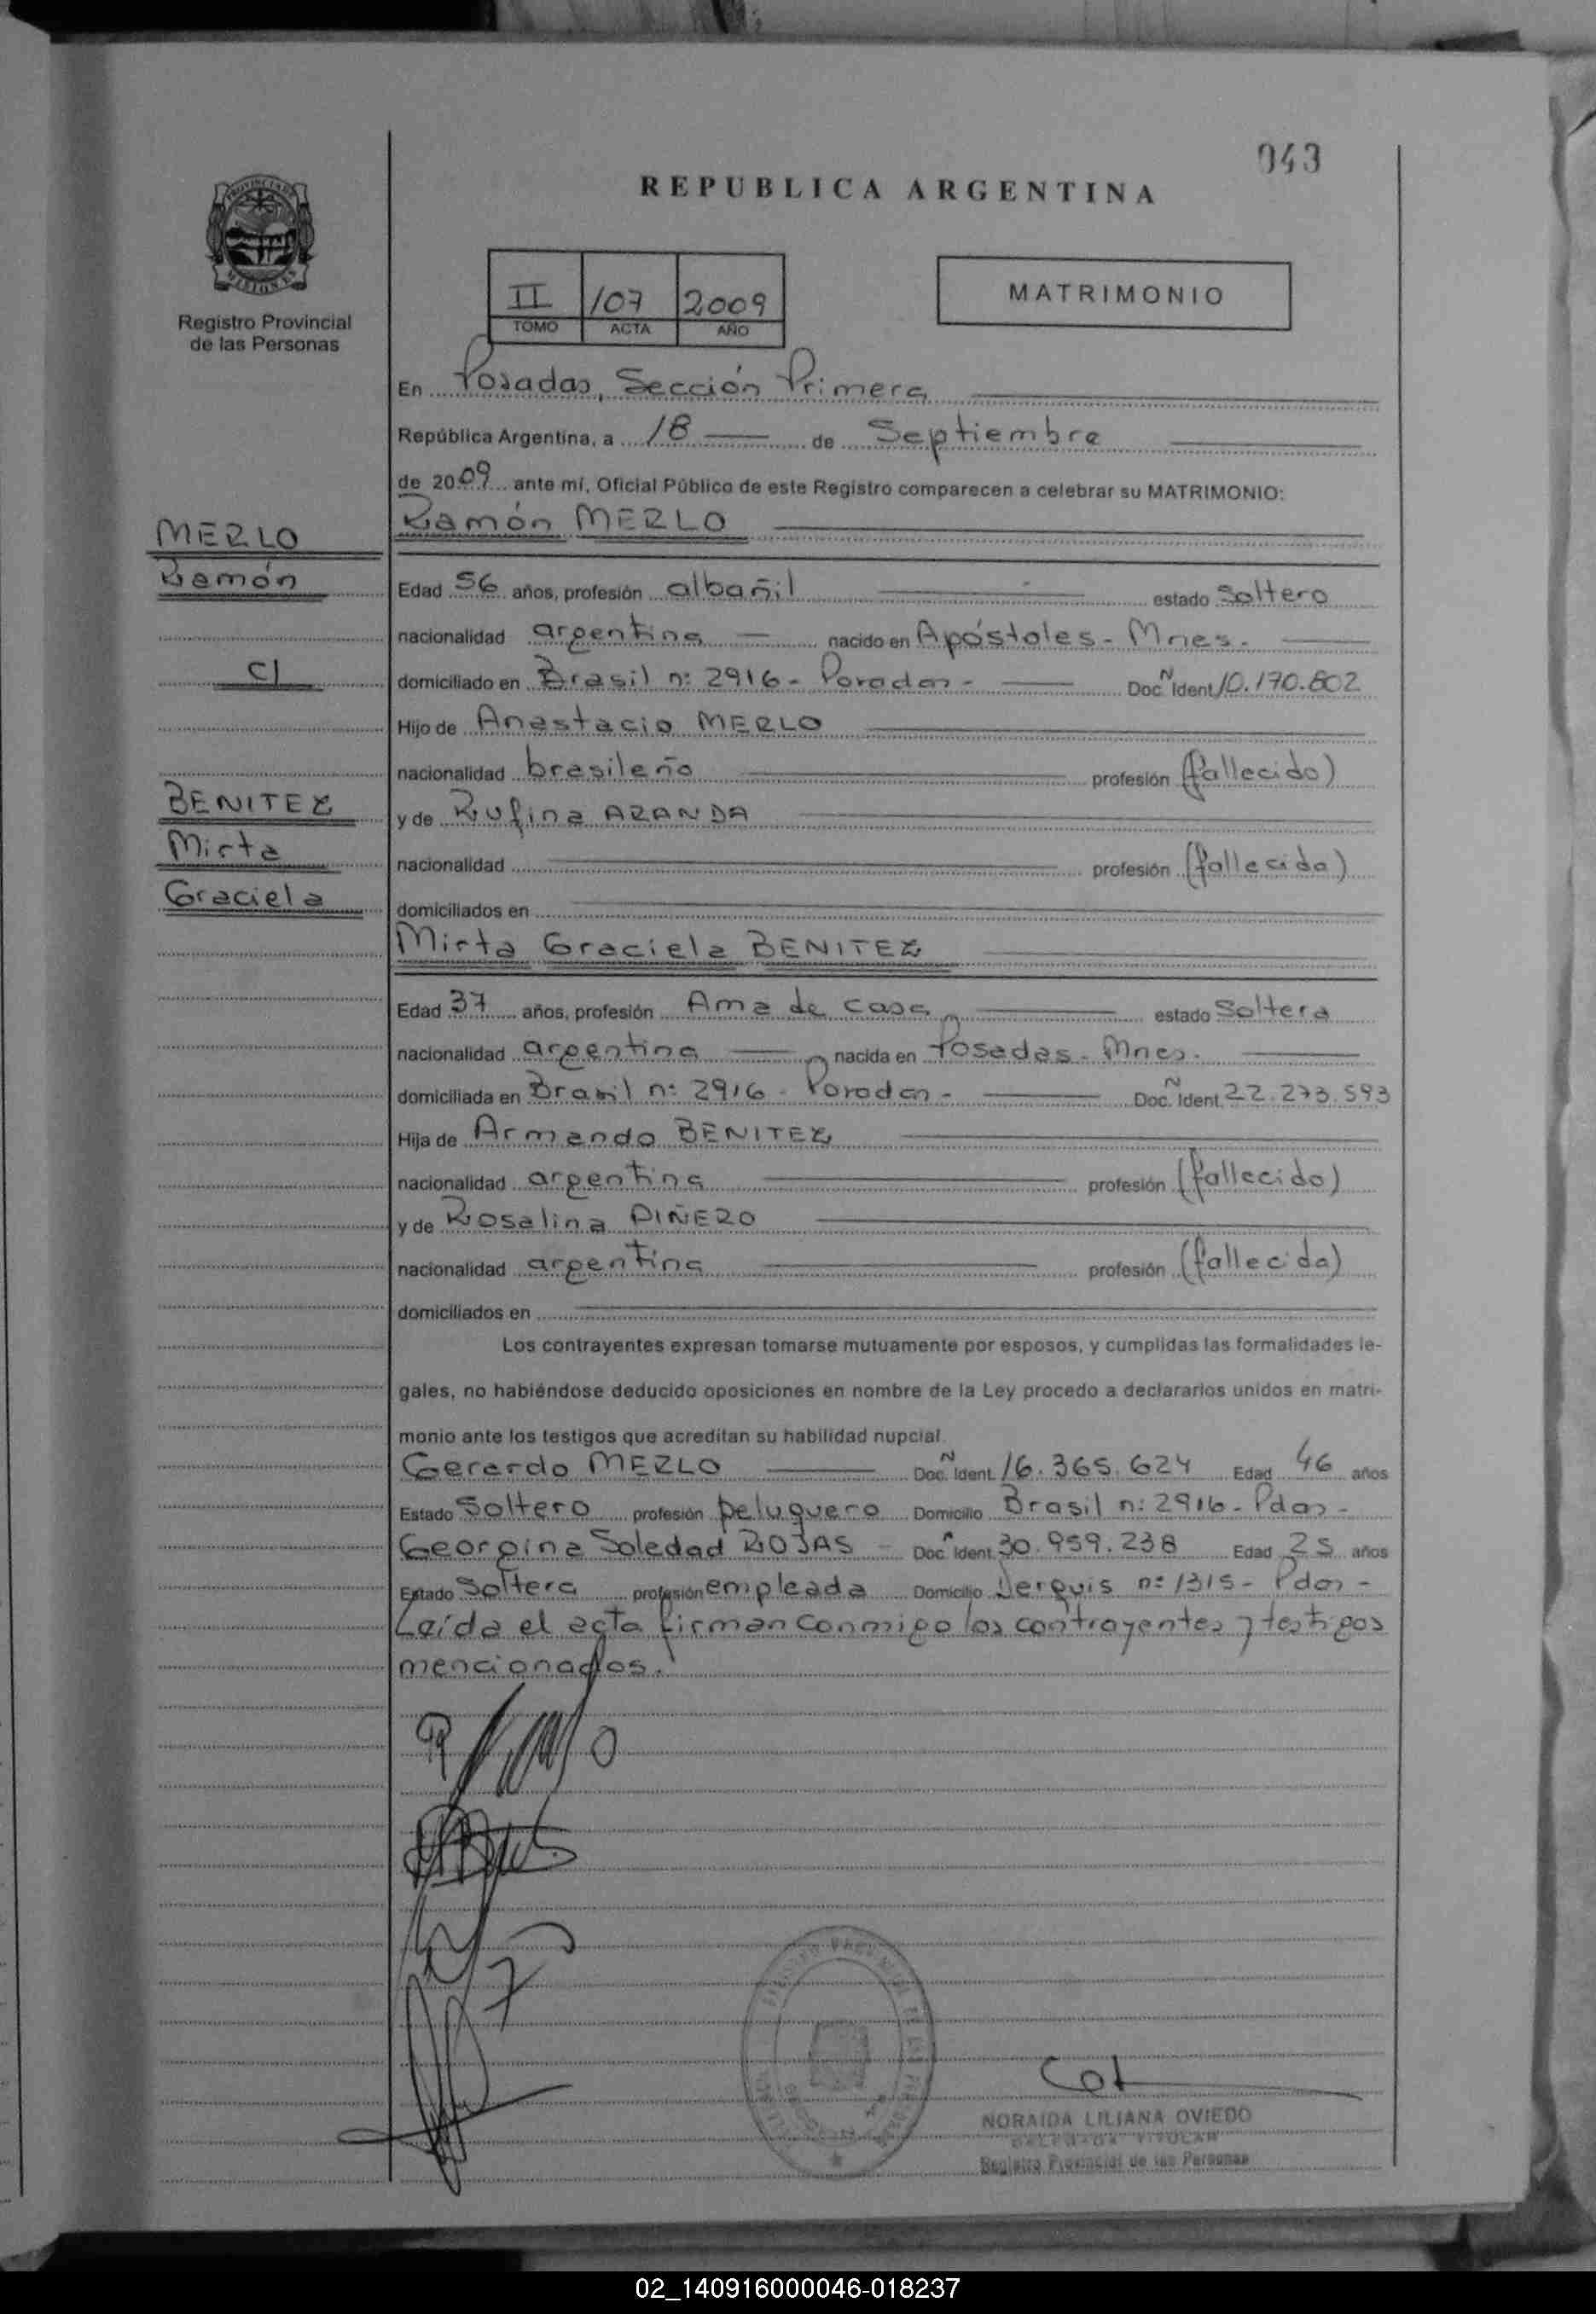 043
REPUBLICA ARGENTINA
PROVINCIA DE
MISIONES
Registro Provincial
de las Personas
II 107 2009
TOMO ACTA AÑO
MATRIMONIO
En Posadas, Sección Primera
República Argentina, a 18 de Septiembre
de 2009 ante mí, Oficial Público de este Registro comparecen a celebrar su MATRIMONIO:
Ramón MERLO
MERLO
Ramón
C/
BENITEZ
Mirta
Graciela
Edad 56 años, profesión albañil estado Soltero
nacionalidad argentina nacido en Apóstoles - Mnes.
domiciliado en Brasil nº 2916 - Posadas - Doc. N Ident 10.170.802
Hijo de Anastacio MERLO
nacionalidad brasileño profesión (fallecido)
y de Rufina ARANDA
nacionalidad profesión (fallecida)
domiciliados en
Mirta Graciela BENITEZ
Edad 37 años, profesión Ama de casa estado Soltera
nacionalidad argentina nacida en Posadas - Mnes.
domiciliada en Brasil nº 2916 - Posadas - Doc. N Ident. 22.273.593
Hija de Armando BENITEZ
nacionalidad argentina profesión (fallecido)
y de Rosalina PIÑERO
nacionalidad argentina profesión (fallecida)
domiciliados en
Los contrayentes expresan tomarse mutuamente por esposos, y cumplidas las formalidades le-
gales, no habiéndose deducido oposiciones en nombre de la Ley procedo a declararlos unidos en matri-
monio ante los testigos que acreditan su habilidad nupcial.
Gerardo MERLO Doc. N Ident. 16.365.624 Edad 46 años
Estado Soltero profesión peluquero Domicilio Brasil nº 2916 - Pdas -
Georgina Soledad ROJAS - Doc. N Ident. 30.959.238 Edad 25 años
Estado Soltera profesión empleada Domicilio Derquis nº 1315 - Pdas -
Leída el acta firman conmigo los contrayentes y testigos
mencionados.
NORAIDA LILIANA OVIEDO
DELEGADA TITULAR
Registro Provincial de las Personas
02_140916000046-018237